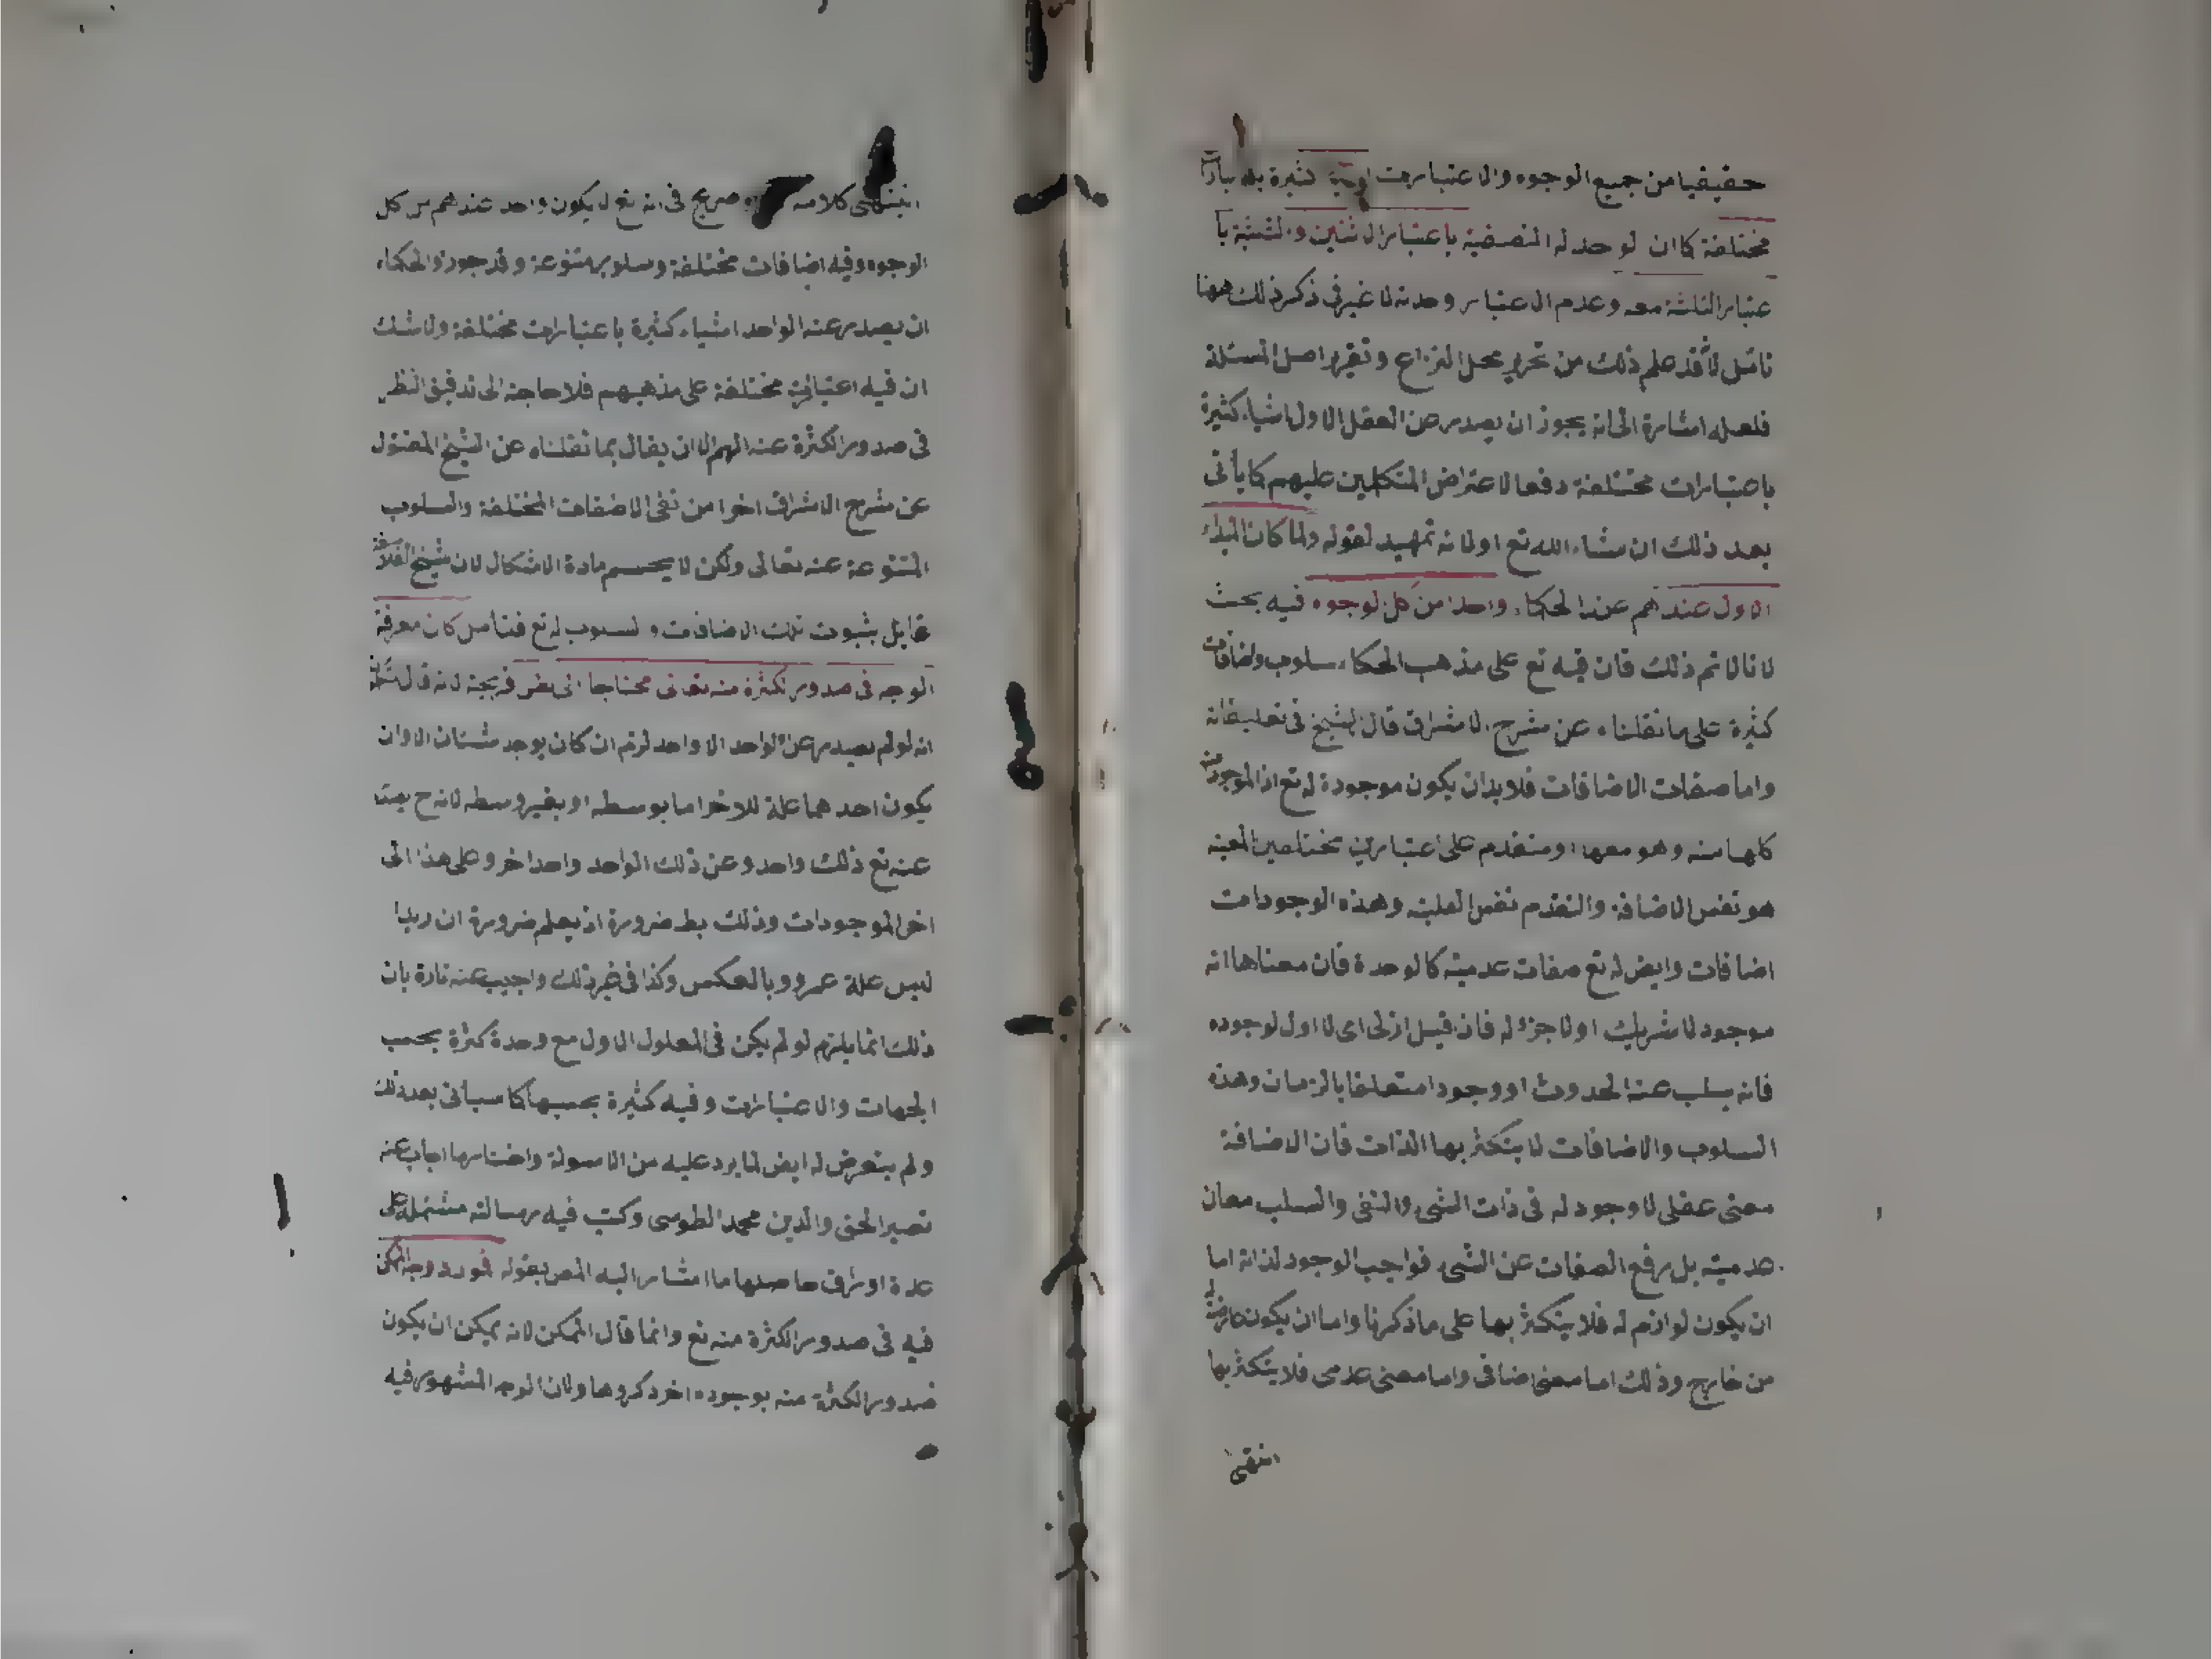 حقيقيا من جميع الوجوه والاعتبارات كثيرة
مختلفة كما ان الوحد له النصفية باعتبار الاثنين والثلثية با
عتبار الثلثة معه وعدم الاعتبار وحدته لا غير في ذكر ذلك ههنا
تأمل لانه قد علم ذلك من تحرير محل النزاع وتقرير اصل المسئلة
فلعله اشارة الى انه يجوز ان يصدر عن العقل الاول اشياء كثيرة
باعتبارات مختلفة دفعا لاعتراض المتكلمين عليهم كما يأتى
بعد ذلك ان شاء الله تع او لانه تمهيد لقوله ولما كان المبداء
الاول عندهم عند الحكماء واحدا من كل الوجوه فيه بحث
لانا لانم ذلك فان فيه تع على مذهب الحكماء سلوب واضافات
كثيرة على ما نقلناه عن شرح الاشراق قال الشيخ في تعليقاته
واما صفات الاضافات فلا بد ان يكون موجودة له تع اذ الموجودات
كلها منه وهو معها او متقدم على اعتبارين مختلفين المعية
هو نفس الاضافة والتقدم نفس العلية وهذه الوجودات
اضافات وايض له تع صفات عدمية كالوحدة فان معناها انه
موجود لا شريك او لا جزؤ له فان قيل ازلى اى لا اول لوجوده
فانه يسلب عنه الحدوث او وجودا متعلقا بالزمان وهذه
السلوب والاضافات لا يتكثر بها الذات فان الاضافة
معنى عقلى لا وجود له في ذات الشئ والنفى والسلب معان
عدمية بل رفع الصفات عن الشئ فواجب الوجود لذاته اما
ان يكون لوازم له فلا يتكثر بها على ما ذكرنا واما ان يكون عارضة له
من خارج وذلك اما معنى اضافى واما معنى عدمى فلا يتكثر بها
انتهى
انتهى كلامه صريح في انه تع لا يكون واحد عندهم من كل
الوجوه وفيه اضافات مختلفة وسلوب متنوعة وقد جوزوا الحكماء
ان يصدر عنه الواحد اشياء كثيرة باعتبارات مختلفة ولا شك
ان فيه اعتبارات مختلفة على مذهبهم فلا حاجة الى تدقيق النظر
في صدور الكثرة عنه الهم الا ان يقال بما نقلناه عن الشيخ المقتول
عن شرح الاشراق اخرا من نفى الاضفات المختلفة والسلوب
المتنوعة عنه تعالى ولكن لا يحسم مادة الاشكال لان شيخ الفلاسفة
قايل بثبوت تلك الاضافات والسلوب له تع فتأمل كان معرفة
الوجه في صدور الكثرة منه تعالى محتاجا الى لانه قال
انه لو لم يصدر عن الواحد الا واحد لزم ان كان يوجد شئان الا وان
يكون احدهما علة للاخر اما بوسطه او بغير وسطه لانه ح
عنه تع ذلك واحد وعن ذلك الواحد واحدا خر وعلى هذا الى
اخر الموجودات وذلك بط ضرورة اذ يعلم ضرورة ان زيدا
ليس علة عمرو وبالعكس وكذا في غير ذلك واجيب عنه تارة بان
ذلك انما يلزم لو لم يكن في المعلول الاول مع وحدة كثرة بحسب
الجهات والاعتبارات وفيه كثيرة بحسبها كما سيأتى بعد ذلك
ولم يتعرض له ايض لما يرد عليه من الاسولة واختارها اجاب عنه
نصير الحق والدين محمد الطوسى وكتب فيه رسالة مشتملة على
عدة اوراق حاصلها ما اشار اليه المص بقوله
فيه في صدور الكثرة منه تع وانما قال الممكن لانه يمكن ان يكون
صدور الكثرة منه بوجوده اخر ذكروها ولان الوجه المشهور فيه